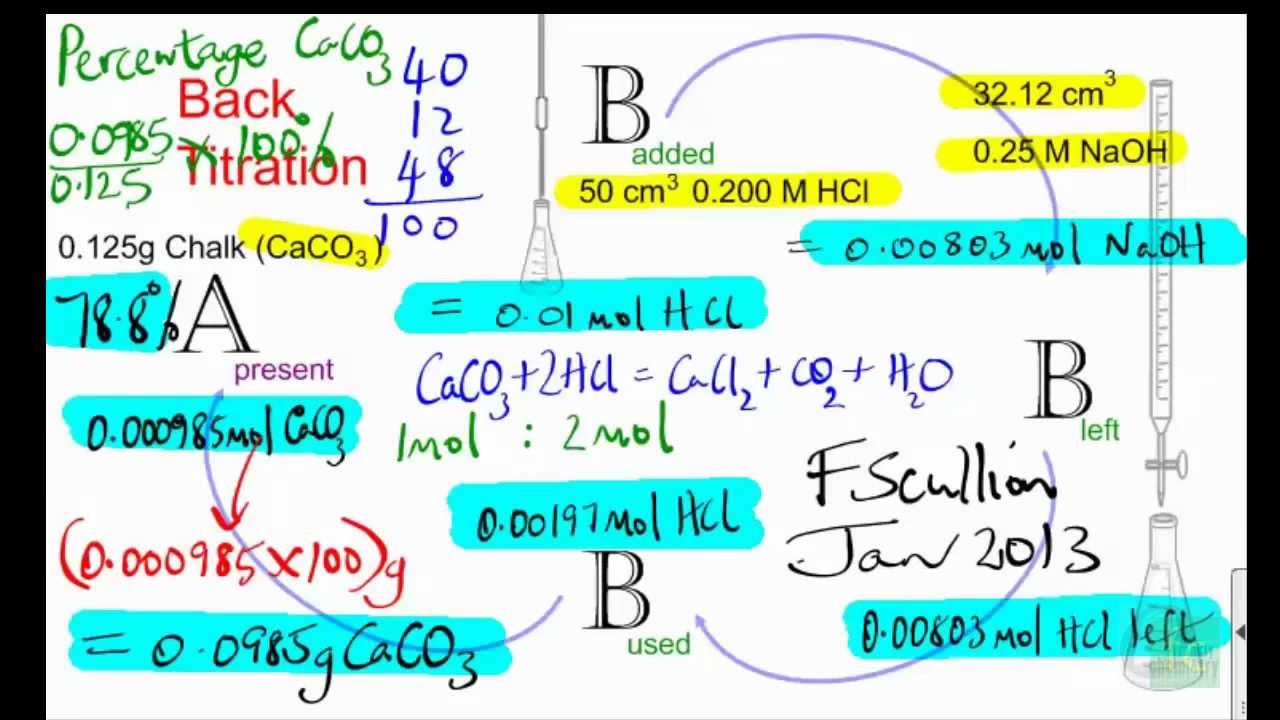 Percentage CaCO₃
Back
Titration
0.0985
0.125
× 100%
40
12
48
100
0.125g Chalk (CaCO₃)
78.8%
A
present
0.000985mol CaCO₃
(0.000985 × 100)g
= 0.0985g CaCO₃
B
added
50 cm³ 0.200 M HCl
= 0.01 mol HCl
CaCO₃ + 2HCl = CaCl₂ + CO₂ + H₂O
1mol : 2mol
0.00197mol HCl
B
used
32.12 cm³
0.25 M NaOH
= 0.00803 mol NaOH
B
left
F Scullion
Jan 2013
0.00803 mol HCl left
chemistry